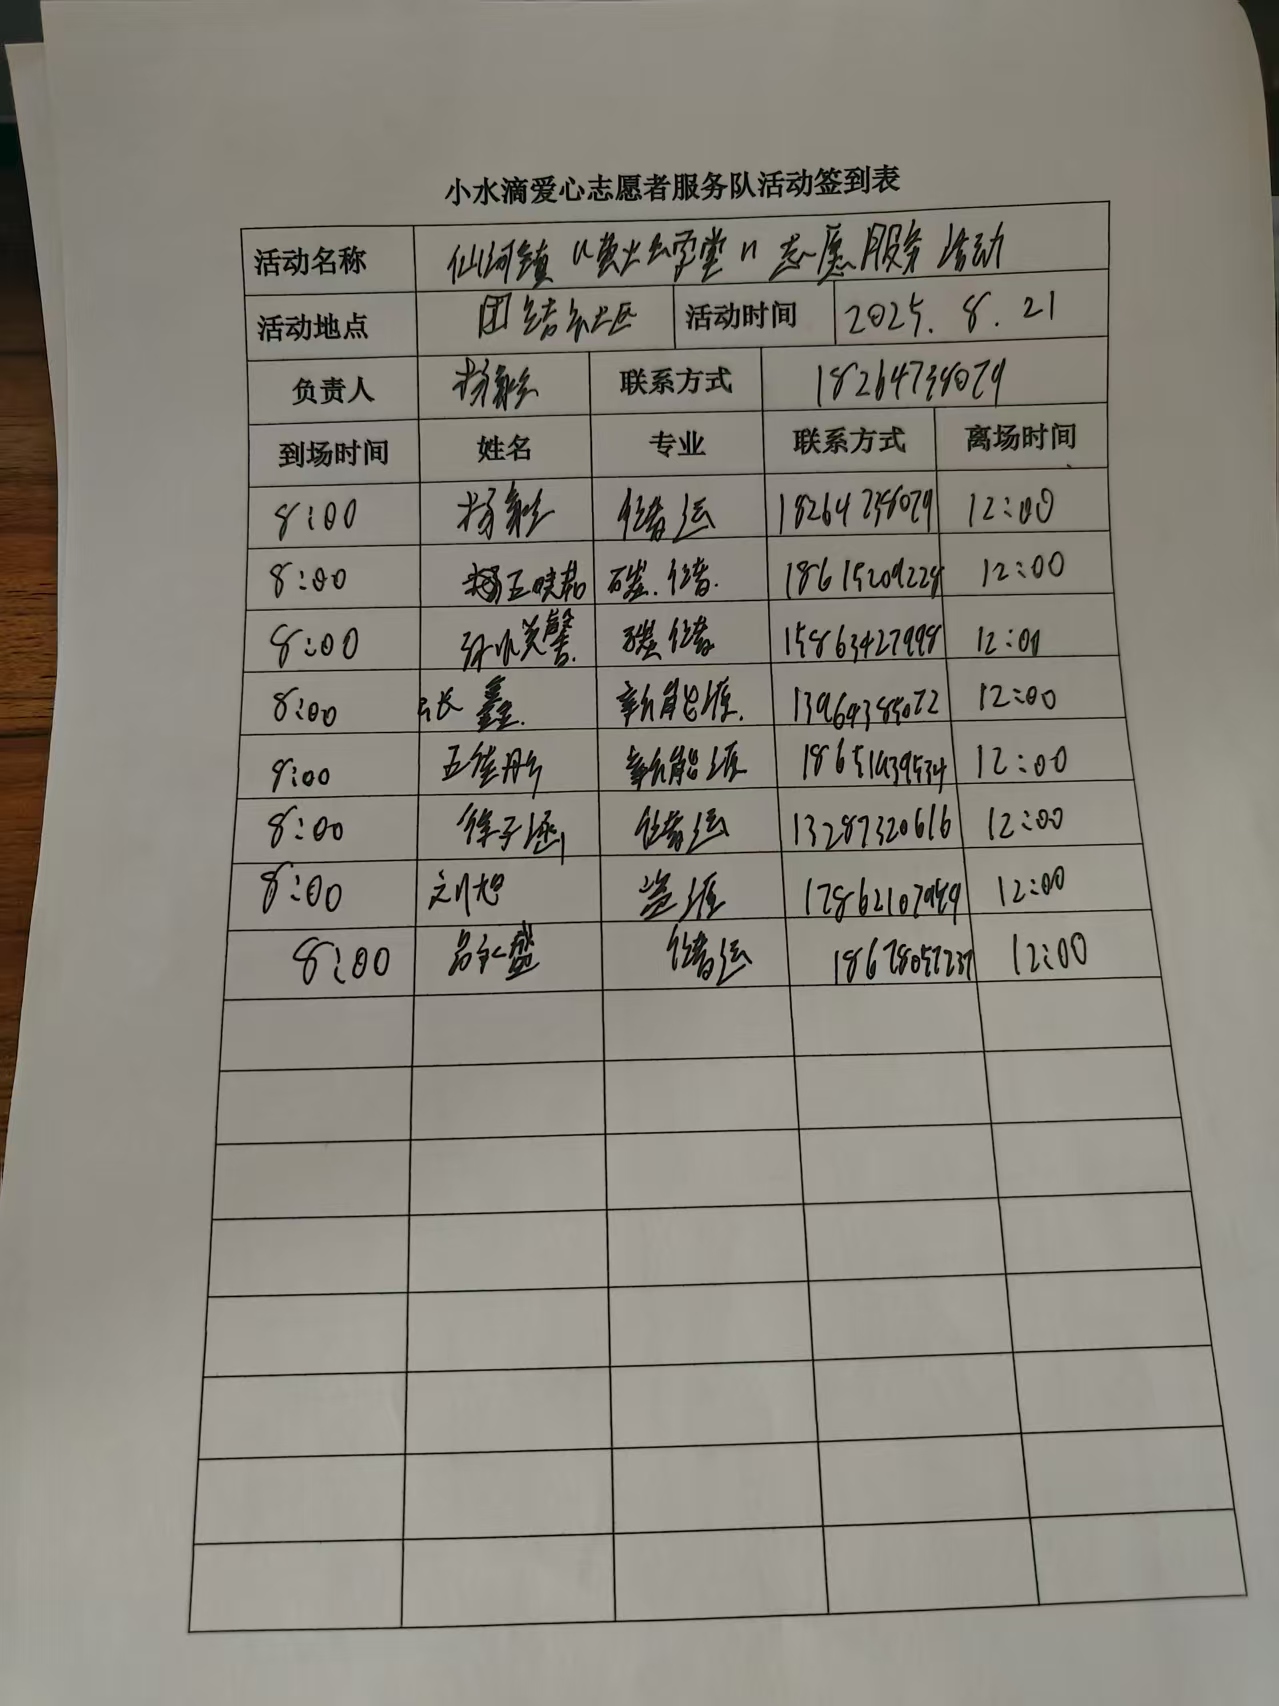 小水滴爱心志愿者服务队活动签到表
活动名称 仙河镇"萤火虫学堂"志愿服务活动
活动地点 团结社区 活动时间 2025.8.21
负责人 杨 联系方式 18264738079
到场时间 姓名 专业 联系方式 离场时间
8:00 杨 储运 18264738079 12:00
8:00 王晓 碳储 18615209228 12:00
8:00 孙冰美馨 碳储 15863427998 12:00
8:00 张鑫 新能源 13964385072 12:00
8:00 王佳丹 新能源 18651939534 12:00
8:00 徐子涵 储运 13287320616 12:00
8:00 刘旭 资源 17862107959 12:00
8:00 吕永盛 储运 18678057237 12:00